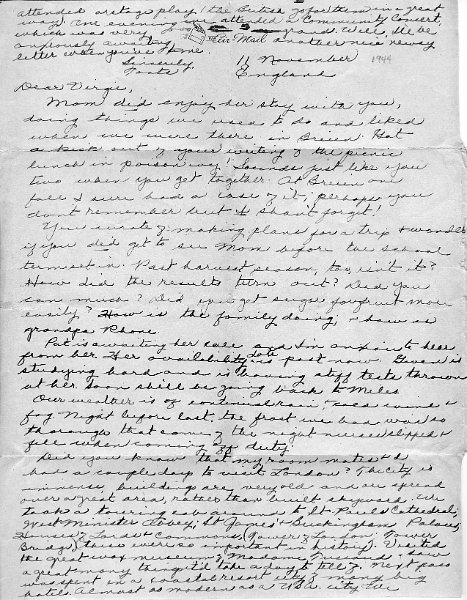 attended a stage play! The British go for them in a great
way. One evening we attended a Community Concert,
which was very grand. Well, I'll be
anxiously awaiting Air Mail another nice newsy
letter when you've time.
Sincerely,
11 November 1944
England
Dear Virgie,
Mom did enjoy her stay with you,
doing things we used to do and liked
when we were there in Brien. Got
a kick out of your writing of the picnic
lunch in poison ivy! Sounds just like you
two when you get together. At Brien one
fall I sure had a case of it, perhaps you
don't remember but I shan't forget!
You wrote of making plans for a trip & wonder
if you did get to see Mom before the school
term set in. Past harvest season, too, isn't it?
How did the results turn out? Did you
can much? Did you get sugar for fruit more
easily? How is the family doing, & how is
grandpa Rhone.
Pat is awaiting her call and I'm anxious to hear
from her. Her availability date is past now. is
studying hard and is having stiff tests thrown
at her. Soon she'll be going back to Miles.
Our weather is of continual rain, cold wind &
fog. Night before last the frost we had was so
thorough that some of the night nurses slipped &
fell when coming off duty.
Did you know that my room mates & I
had a couple days to visit London? The city is
immense, buildings are very old and are spread
over a great area, rather than built skyward. We
took a touring cab around to St. Paul's Cathedral,
West Minister Abbey, St. James' & Buckingham Palaces,
Houses of Lords & Commons, Tower of London, Tower
Bridge, (these were so important in history). Visited
the great wax museum, Madame & saw
a great many things it'd take a day to tell of. Next pass
was spent in a coastal resort city of many big
hotels. Almost as modern as a U.S.A. city. We